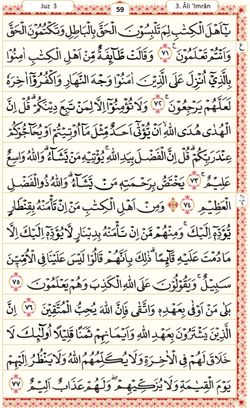 Juz 3 59 3. Âli 'Imrân
يٰٓاَهْلَ الْكِتٰبِ لِمَ تَلْبِسُوْنَ الْحَقَّ بِالْبَاطِلِ وَتَكْتُمُوْنَ الْحَقَّ
وَاَنْتُمْ تَعْلَمُوْنَ ࣖ ٧١ وَقَالَتْ طَّاۤىِٕفَةٌ مِّنْ اَهْلِ الْكِتٰبِ اٰمِنُوْا
بِالَّذِيْٓ اُنْزِلَ عَلَى الَّذِيْنَ اٰمَنُوْا وَجْهَ النَّهَارِ وَاكْفُرُوْٓا اٰخِرَهٗ
لَعَلَّهُمْ يَرْجِعُوْنَۚ ٧٢ وَلَا تُؤْمِنُوْٓا اِلَّا لِمَنْ تَبِعَ دِيْنَكُمْۗ قُلْ اِنَّ
الْهُدٰى هُدَى اللّٰهِ اَنْ يُّؤْتٰىٓ اَحَدٌ مِّثْلَ مَآ اُوْتِيْتُمْ اَوْ يُحَاۤجُّوْكُمْ
عِنْدَ رَبِّكُمْۗ قُلْ اِنَّ الْفَضْلَ بِيَدِ اللّٰهِۚ يُؤْتِيْهِ مَنْ يَّشَاۤءُۗ وَاللّٰهُ وَاسِعٌ
عَلِيْمٌۚ ٧٣ يَخْتَصُّ بِرَحْمَتِهٖ مَنْ يَّشَاۤءُۗ وَاللّٰهُ ذُو الْفَضْلِ
الْعَظِيْمِ ٧٤ وَمِنْ اَهْلِ الْكِتٰبِ مَنْ اِنْ تَأْمَنْهُ بِقِنْطَارٍ
يُّؤَدِّهٖٓ اِلَيْكَۚ وَمِنْهُمْ مَّنْ اِنْ تَأْمَنْهُ بِدِيْنَارٍ لَّا يُؤَدِّهٖٓ اِلَيْكَ اِلَّا
مَا دُمْتَ عَلَيْهِ قَاۤىِٕمًاۗ ذٰلِكَ بِاَنَّهُمْ قَالُوْا لَيْسَ عَلَيْنَا فِى الْاُمِّيّٖنَ
سَبِيْلٌۚ وَيَقُوْلُوْنَ عَلَى اللّٰهِ الْكَذِبَ وَهُمْ يَعْلَمُوْنَ ٧٥
بَلٰى مَنْ اَوْفٰى بِعَهْدِهٖ وَاتَّقٰى فَاِنَّ اللّٰهَ يُحِبُّ الْمُتَّقِيْنَ ٧٦ اِنَّ
الَّذِيْنَ يَشْتَرُوْنَ بِعَهْدِ اللّٰهِ وَاَيْمَانِهِمْ ثَمَنًا قَلِيْلًا اُولٰۤىِٕكَ لَا
خَلَاقَ لَهُمْ فِى الْاٰخِرَةِ وَلَا يُكَلِّمُهُمُ اللّٰهُ وَلَا يَنْظُرُ اِلَيْهِمْ
يَوْمَ الْقِيٰمَةِ وَلَا يُزَكِّيْهِمْۖ وَلَهُمْ عَذَابٌ اَلِيْمٌ ٧٧